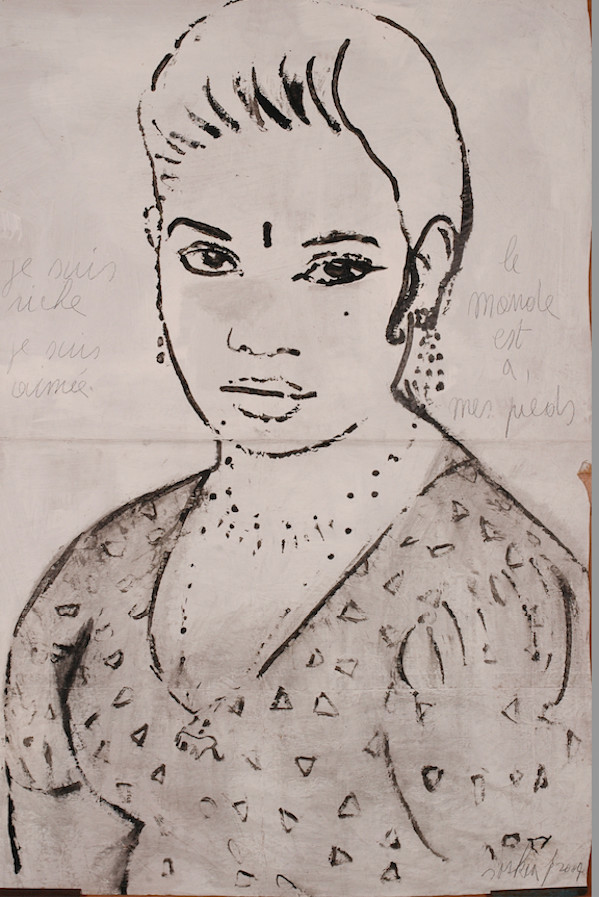 je suis
riche
je suis
aimée.
le
monde
est
à
mes pieds